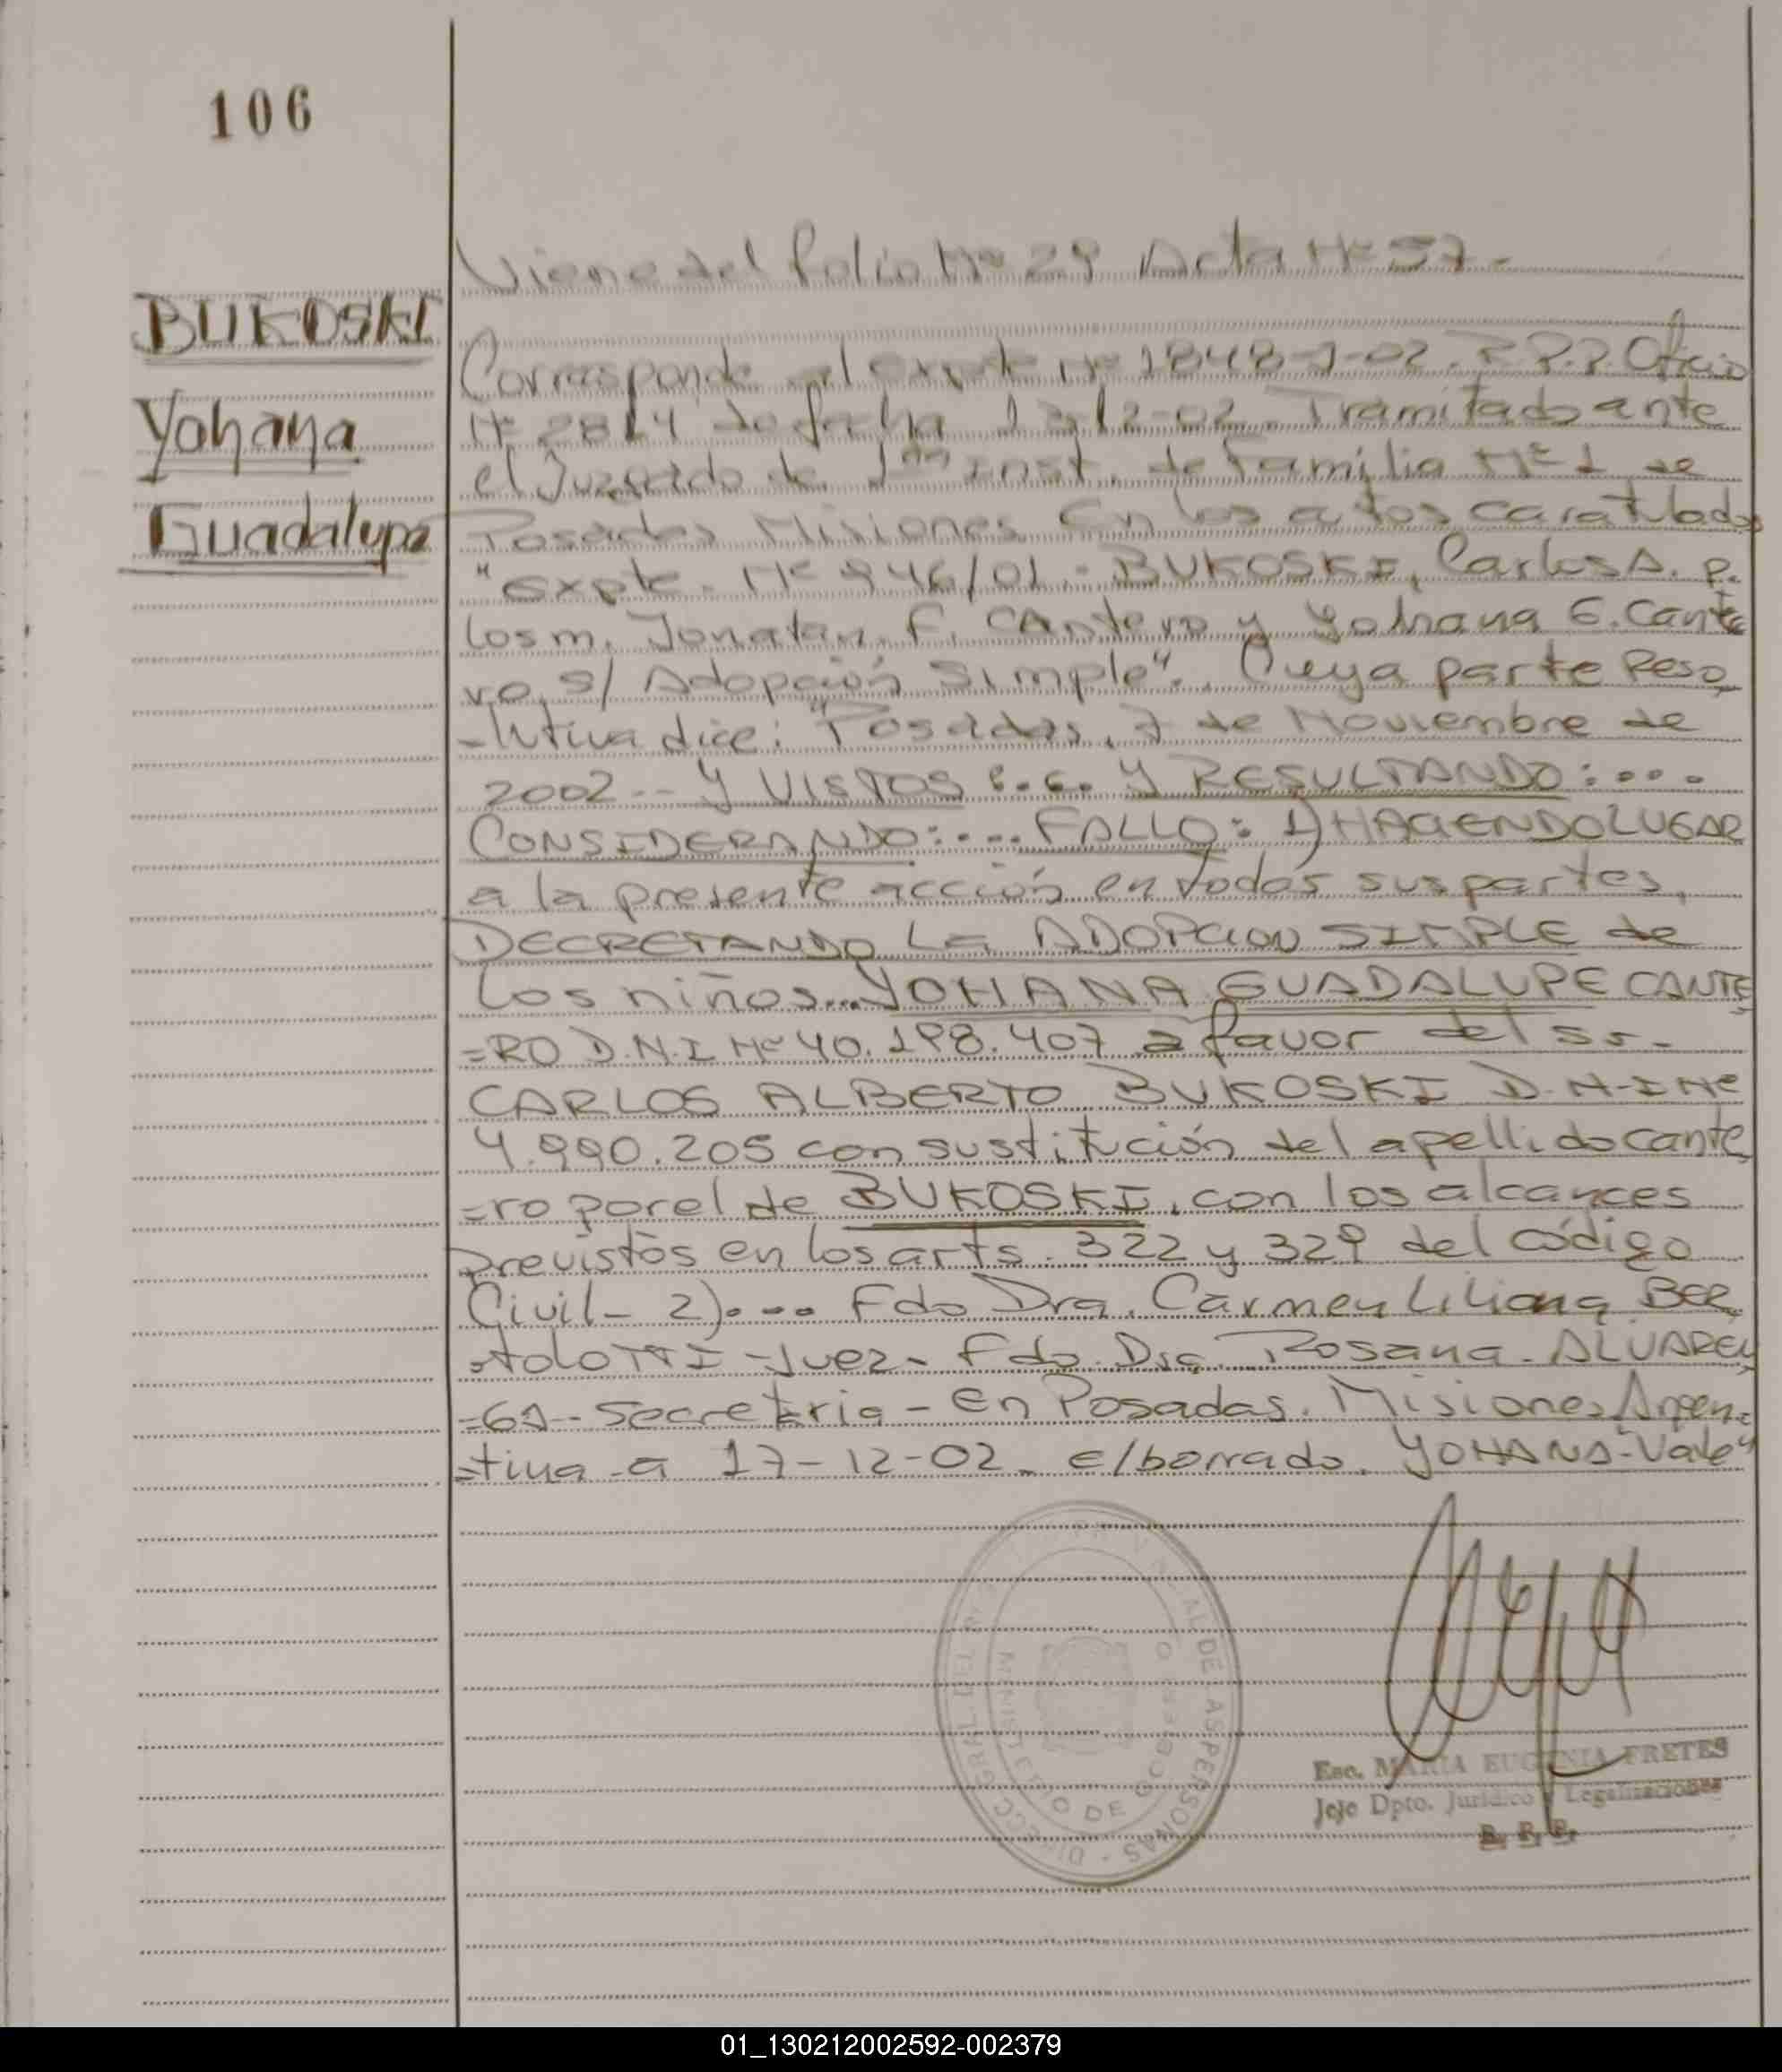 106
BUKOSKI
Yohana
Guadalupe
Viene del folio Nº 29 Acta Nº 57.-
Corresponde al expte Nº 1848-J-02. R.P.P. Oficio
Nº 2814 de fecha 12-02. Tramitado ante
el Juzgado de 1ra Inst. de Familia Nº 1 de
Posadas Misiones En los autos caratulados
"Expte. Nº 946/01 - BUKOSKI, Carlos A. p.
los m. Jonatan F. CANtero y Yohana G. Cante
ro s/ Adopción Simple". Cuya parte Reso
-lutiva dice: "Posadas, 7 de Noviembre de
2002.-- Y VISTOS: Y RESULTANDO:...
CONSIDERANDO:.... FALLO: 1) HACIENDO LUGAR
a la presente acción en todas sus partes,
DECRETANDO LA ADOPCION SIMPLE de
los niños... YOHANA GUADALUPE CANTE
=RO D.N.I Nº 40.198.407 a favor del Sr.
CARLOS ALBERTO BUKOSKI D.N.I Nº
4.990.205 con sustitución del apellido cante
=ro por el de BUKOSKI, con los alcances
previstos en los arts. 322 y 329 del código
Civil- 2).... Fdo Dra. Carmen Liliana BER
=toloTTI - Juez. Fdo. Dra. Rosana. ALVAREN
=GA-- Secretaria - En Posadas. Misiones Argen=
=tina a 17-12-02. E/borrado. YOHANA - Vale"
DIRECC. GRAL. DEL PROVINCIAL DE LAS PERSONAS -
MINISTERIO DE GOBIERNO
Esc. MARIA EUGENIA FRETES
Jefe Dpto. Jurídico y Legalizaciones
R. P. P.
01_130212002592-002379